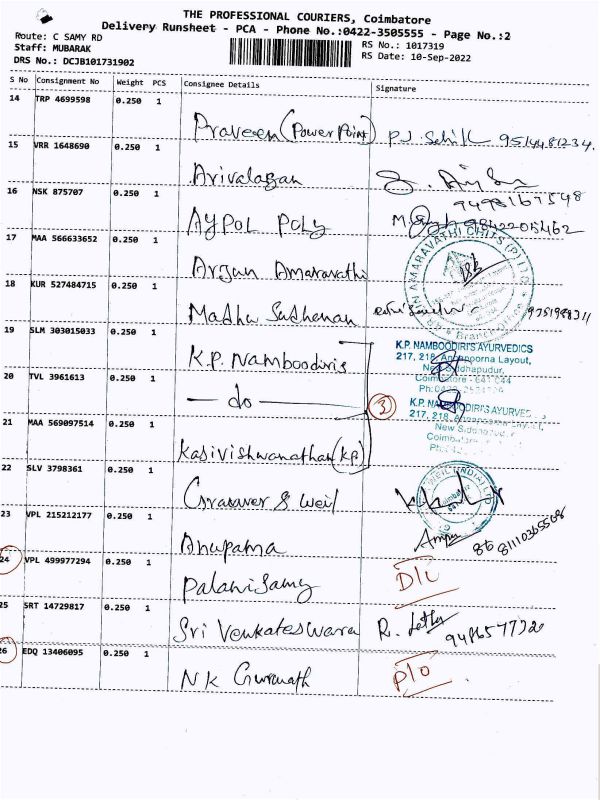 THE PROFESSIONAL COURIERS, Coimbatore
Delivery Runsheet - PCA - Phone No.:0422-3505555 - Page No.:2
Route: C SAMY RD
Staff: MUBARAK
DRS No.: DCJB101731902
RS No.: 1017319
RS Date: 10-Sep-2022
S No Consignment No Weight PCS Consignee Details Signature
14 TRP 4699598 0.250 1
Praveen (Power Point) 9514481234.
15 VRR 1648690 0.250 1
Arivalagan
16 NSK 875707 0.250 1
AYPOL POLY 9842205462
17 MAA 566633652 0.250 1
Arjun Amaravathi
18 KUR 527484715 0.250 1
Madhu Sudhanan
19 SLM 303015033 0.250 1
K.P. Namboodiris
K.P. NAMBOODIRI'S AYURVEDICS
217, 218, Annapoorna Layout,
New Siddhapudur,
Coimbatore - 641 044
20 TVL 3961613 0.250 1
do 3
K.P. NAMBOODIRI'S AYURVE
217, 218, Annapoorna Layout,
21 MAA 569097514 0.250 1
Kasivishwanathan (KP)
22 SLV 3798361 0.250 1
Grauer & Weil
23 VPL 215212177 0.250 1
Anupama
24 VPL 499977294 0.250 1
Palanisamy D/L
25 SRT 14729817 0.250 1
Sri Venkateswara
26 EDQ 13406095 0.250 1
NK Gurunath P/O